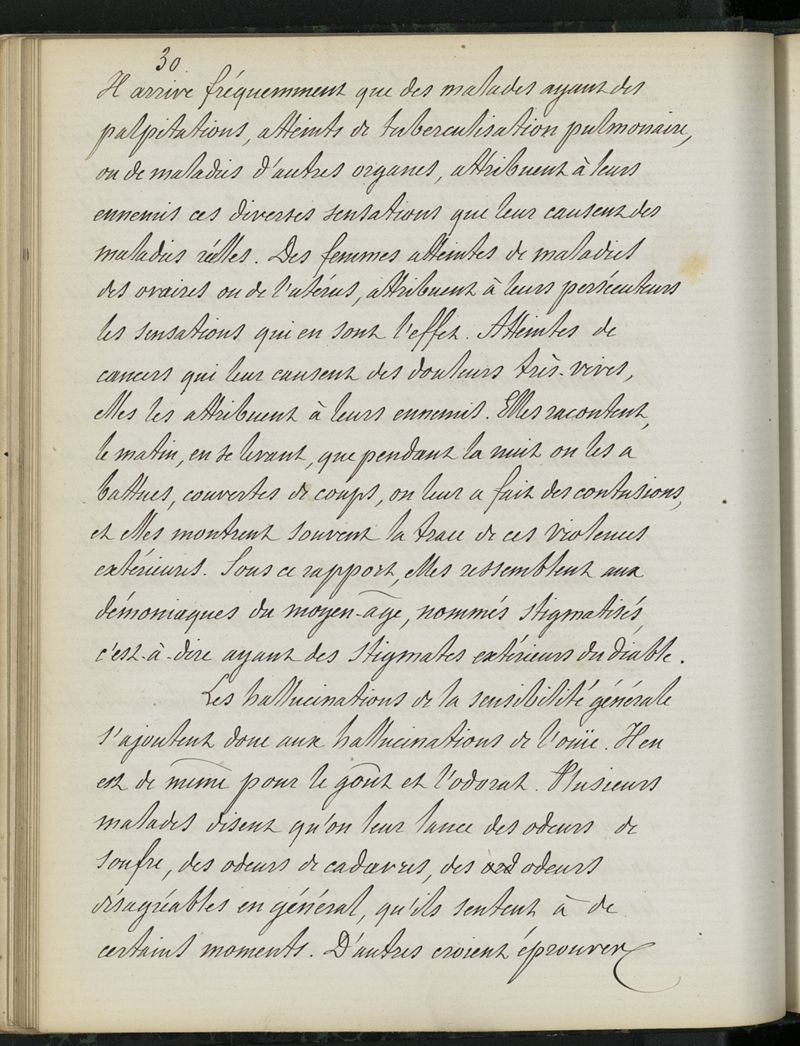 30
Il arrive fréquemment que des malades ayant des
palpitations, atteints de tuberculisation pulmonaire,
ou de maladies d'autres organes, attribuent à leurs
ennemis ces diverses sensations que leur causent des
maladies réelles. Des femmes atteintes de maladies
des ovaires ou de l'utérus, attribuent à leurs persécuteurs
les sensations qui en sont l'effet. Atteintes de
cancers qui leur causent des douleurs très-vives,
elles les attribuent à leurs ennemis. Elles racontent,
le matin, en se levant, que pendant la nuit on les a
battues, couvertes de coups, on leur a fait des contusions,
et elles montrent souvent la trace de ces violences
extérieures. Sous ce rapport, elles ressemblent aux
démoniaques du moyen-âge, nommés stigmatisés,
c'est-à-dire ayant des stigmates extérieurs du diable.
Les hallucinations de la sensibilité générale
s'ajoutent donc aux hallucinations de l'ouïe. Il en
est de même pour le goût et l'odorat. Plusieurs
malades disent qu'on leur lance des odeurs de
soufre, des odeurs de cadavres, des odeurs
désagréables en général, qu'ils sentent à de
certains moments. D'autres croient éprouver